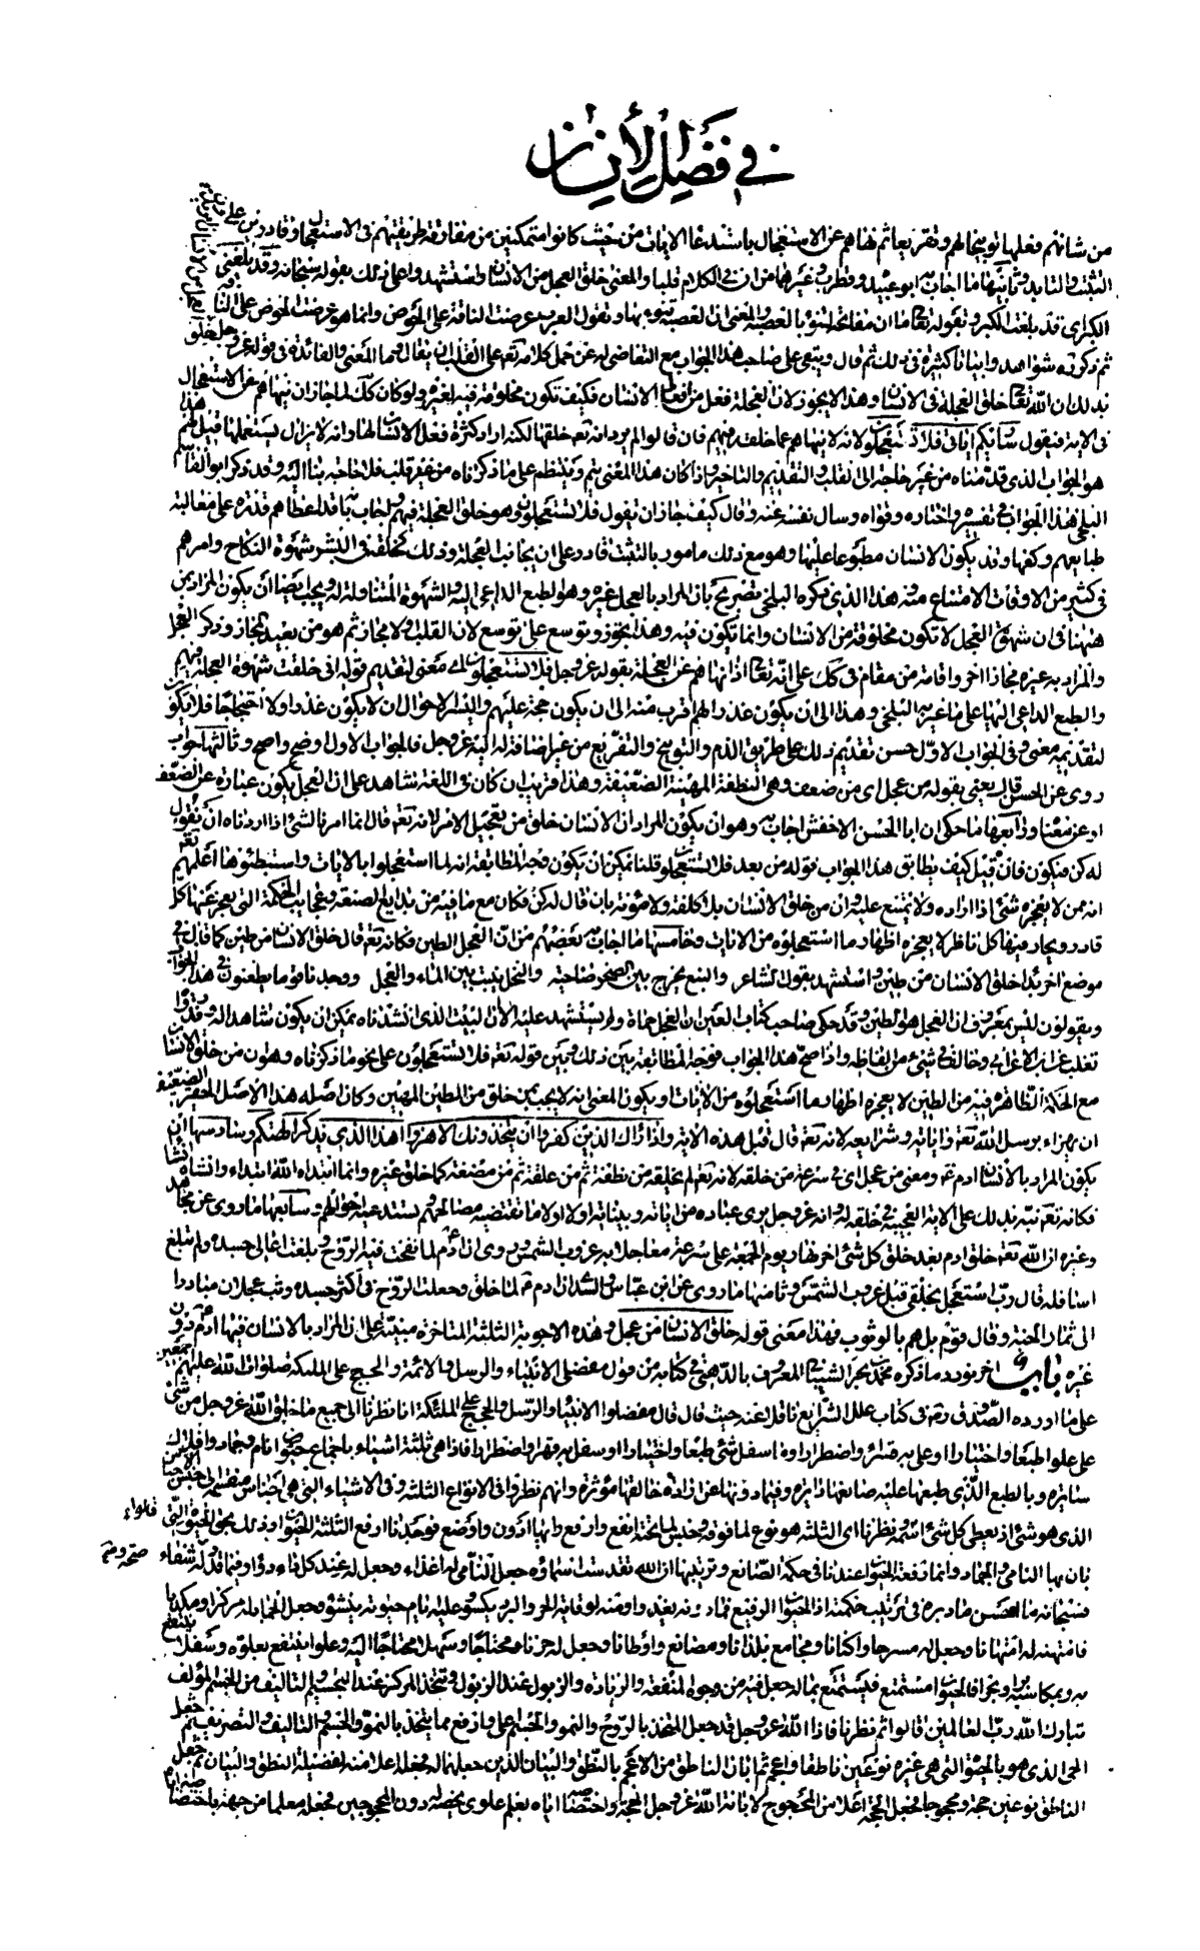 في فضل الإنسان
من شانهم فعلها توبيخا لهم وتقريعا ثم نهاهم عن الاستعجال باستدعا الايات من حيث كانوا متمكنين من مفارقة طريقتهم في الاستعجال وقادرين على
التثبت والتايد وثانيها ما اجاب به ابو عبيد وقطرب وغيرهما من ان في الكلام قلبا والمعنى خلق العجل من الانسان واستشهد واعلى ذلك بقوله سبحانه وقد بلغني
الكبر اى قد بلغت الكبر وبقوله تعا ما ان مفاتحه لتنوء بالعصبة والمعنى ان العصبة تنوء بها وتقول العرب عرضت الناقة على الحوض وانما هو عرضت الحوض على الناقة
ثم ذكر شواهد وابياتا كثيرة في ذلك ثم قال ويبقى على صاحب هذا الجواب مع التغاضي له عن حمل كلامه تعه على القلب ان يقال وما المعنى والفائدة في قوله عز وجل خلق
بذلك ان الله تعا خلق العجلة في الانسان وهذا لا يجوز لان العجلة فعل من افعال الانسان فكيف تكون مخلوقة فيه لغيره ولو كان كك لما جاز ان ينهاهم عن الاستعجال
في الاية فيقول ساريكم اياتي فلا تستعجلون لانه لا ينهاهم عما خلقه فيهم فان قالوا لم يرد انه تعه خلقها لكنه اراد كثرة فعل الانسان لها وانه لا يزال يستعملها قيل لهم هذا
هو الجواب الذي قدمناه من غير حاجة الى القلب والتقديم والتاخير واذا كان هذا المعنى يتم وينتظم على ما ذكرناه من غير قلب فلا حاجة بنا اليه وقد ذكر ابو القاسم
البلخي هذا الجواب في تفسيره واختاره وقواه وسال نفسه عنه وقال كيف جاز ان يقول فلا تستعجلون وهو خلق العجلة فيهم واجاب بانه قد اعطاهم قدرة على مغالبة
طبايعهم وكفها وقد يكون الانسان مطبوعا عليها وهو مع ذلك مامور بالتثبت قادر على ان يجانب العجلة وذلك كخلقه في البشر شهوة النكاح وامرهم
في كثير من الاوقات الامتناع منه هذا الذي ذكره البلخي تصريح بان المراد بالعجل غيره وهو الطبع الداعي اليه والشهوة المتناولة له ويجب ايضا ان يكون المراد بمن
ههنا في لان شهوة العجل لا تكون مخلوقة من الانسان وانما تكون فيه وهذا تجوز وتوسع على توسع لان القلب اولا مجاز ثم هو من بعيد المجاز وذكر العجل
والمراد به غيره مجاز اخر واقامة من مقام في كك على انه تعا اذا نهاهم عن العجلة بقوله عز وجل فلا تستعجلون اى معنى لتقديم قوله انى خلقت شهوة العجلة فيهم
والطبع الداعي اليها على ما عبر به البلخي وهذا الى ان يكون عذرا لهم اقرب منه الى ان يكون حجة عليهم واليسر الاحوال ان لا يكون عذرا ولا احتجاجا فلا يكون
لتقديمه معنى وفي الجواب الاول حسن تقديم ذلك على طريق الذم والتوبيخ والتقريع من غير اضافة له اليه عز وجل فالجواب الاول اوضح واصح وثالثها جواب
روى عن الحسن قال يعنى بقوله من عجل اى من ضعف وهي النطفة المهينة الضعيفة وهذا قريب ان كان في اللغة شاهد على ان العجل يكون عبارة عن الضعف
او عن معناه ورابعها ما حكى ان ابا الحسن الاخفش اجاب به وهو ان يكون المراد ان الانسان خلق من تعجيل الامر لانه تعه قال انما امرنا لشئ اذا اردناه ان نقول
له كن فيكون فان قيل كيف يطابق هذا الجواب قوله من بعد فلا تستعجلون قلنا يمكن ان يكون وجه المطابقة انه لما استعجلوا بالايات واستبطئوها اعلمهم تعه
انه ممن لا يعجزه شئ اذا اراده ولا يمتنع عليه وان من خلق الانسان بلا كلفة ولا مؤنة بان قال له كن فكان مع ما فيه من بدايع الصنعة وعجايب الحكمة التي يعجز عنها كل
قادر ويحار فيها كل ناظر لا يعجزه اظهار ما استعجلوه من الايات وخامسها ما اجاب به بعضهم من ان العجل الطين فكانه تعه قال خلق الانسان من طين كما قال في
موضع اخر بدا خلق الانسان من طين واستشهد بقول الشاعر والنبع يخرج بين الصخر ضاحية والنخل ينبت بين الماء والعجل ووجدنا قوما يطعنون في هذا الجواب
ويقولون ليس بمعروف ان العجل هو الطين وقد حكى صاحب كتاب العين ان العجل حماة ولم يستشهد عليه الا ان البيت الذي انشدناه يمكن ان يكون شاهدا له وقد رواه
ثعلب عن ابن الاعرابي وخالف في شئ من الفاظه واذا صح هذا الجواب فوجه المطابقة بين ذلك وبين قوله تعه فلا تستعجلون على نحو ما ذكرناه وهو ان من خلق الانسان
مع الحكمة الظاهرة فيه من الطين لا يعجزه اظهار ما استعجلوه من الايات ويكون المعنى انه لا يجب بمن خلق من الطين المهين وكان اصله هذا الاصل الحقير الضعيف
ان يهزاء برسل الله تعه واياته وشرايعه لانه تعه قال قبل هذه الاية واذا راك الذين كفروا ان يتخذونك الا هزوا اهذا الذي يذكر الهتكم وسادسها ان
يكون المراد بالانسان ادم ع ومعنى من عجل اى في سرعة من خلقه لانه تعه لم يخلقه من نطفة ثم من علقة ثم من مضغة كما خلق غيره وانما ابتداه الله ابتداء وانشاه انشاء
فكانه تعه نبه بذلك على الاية العجيبة في خلقه له وانه عز وجل يرى عباده من اياته وبيناته اولا اولا ما تقتضيه مصالحهم وتستدعيه احوالهم وسابعها ما روى عن مجاهد
وغيره ان الله تعه خلق ادم بعد خلق كل شئ اخر نهار يوم الجمعة على سرعة معاجلا به غروب الشمس وروى ان ادم لما نفخت فيه الروح وبلغت اعالي جسده ولم تبلغ
اسافله قال رب استعجل بخلقي قبل غروب الشمس وثامنها ما روى عن ابن عباس والسدى ان ادم ع لما خلق وجعلت الروح في اكثر جسده وثب عجلان مبادرا
الى ثمار الجنة وقال قوم بل هم بالوثوب فهذا معنى قوله خلق الانسان من عجل وهذه الاجوبة الثلثة المتاخرة مبنية على ان المراد بالانسان فيها ادم ع دون
غيره باب اخر نورد ما ذكره محمد بن بحر الشيباني المعروف بالدهني في كتابه من قول مفضلي الانبياء والرسل والائمة والحجج على الملئكة صلوات الله عليهم اجمعين
على ما اورده الصدوق ره في كتاب علل الشرايع ناقلا عنه حيث قال قال مفضلوا الانبياء والرسل والحجج على الملئكة انا نظرنا الى جميع ما خلق الله عز وجل من شئ
على علوا طبعا واختيارا او على به قسرا واضطرارا وما سفل شئ طبعا واختيارا او سفل به قهرا واضطرارا فاذا هي ثلثة اشياء باجماع حيوان نام وجماد وافلاك
سائرة وبالطبع الذي طبعها عليه صانعها دائرة وفيما دونها عن ارادة خالقها مؤثرة وانهم نظروا في الانواع الثلثة وفي الاشياء التي هي اجناس منقسمة الى جنس الاجناس
الذي هو شئ اذ يعطى كل شئ اسمه ونظرنا اى الثلثة هو نوع لما فوقه وجنس لما تحته انفع وارفع وايها ادون واوضع فوجدنا ارفع الثلثة الحيوان وذلك بحق الحيوة التي
بان بها النامي والجماد وانما رفعة الحيوان عندنا في حكمة الصانع وترتيبها ان الله تقدست اسماؤه جعل النامي له اغذاء وجعل له عند كل داء دواء وفيما قدر له شفاء
فلواء
صحة وشفاء
فسبحانه ما احسن ما دبره في ترتيب حكمته اذ الحيوان الرفيع فما دونه يغذو ومنه لوقاية الحر والبرد يكسو وعليه ايام حيوته ينشو وجعل الجماد له مركزا ومكدبا
فامتهنه له امتهانا وجعل له مسرحا واكنانا ومجامع وبلدانا ومصانع واوطانا وجعل له حزنا محتاجا وسهلا محتاجا اليه وعلوا ينتفع بعلوه وسفلا ينتفع
به ويمكاسبه برا وبحرا فالحيوان مستمتع فيستمتع بما له جعل فيه من وجوه المنفعة والزيادة والزبول عند الزبول ويتخذ المركز عند التجسيم والتاليف من الجسم المؤلف
تبارك الله رب العالمين قالوا ثم نظرنا فاذا الله عز وجل قد جعل المتخذ بالروح والنمو والجسم اعلى وارفع مما يتخذ بالنمو والجسم والتاليف والتصريف ثم جعل
الحي الذي هو بالحيوة التي هي غيره نوعين ناطقا واعجم ثم ابان الناطق من الاعجم بالنطق والبيان الذين جعلهما له فجعله اعلا منه لفضيلة النطق والبيان ثم جعل
الناطق نوعين حجة ومحجوجا فجعل الحجة اعلا من المحجوج لابانة الله عز وجل الحجة واختصاصه اياه بعلم علوي يخصه له دون المحجوجين فجعله معلما من جهته باختصاصه